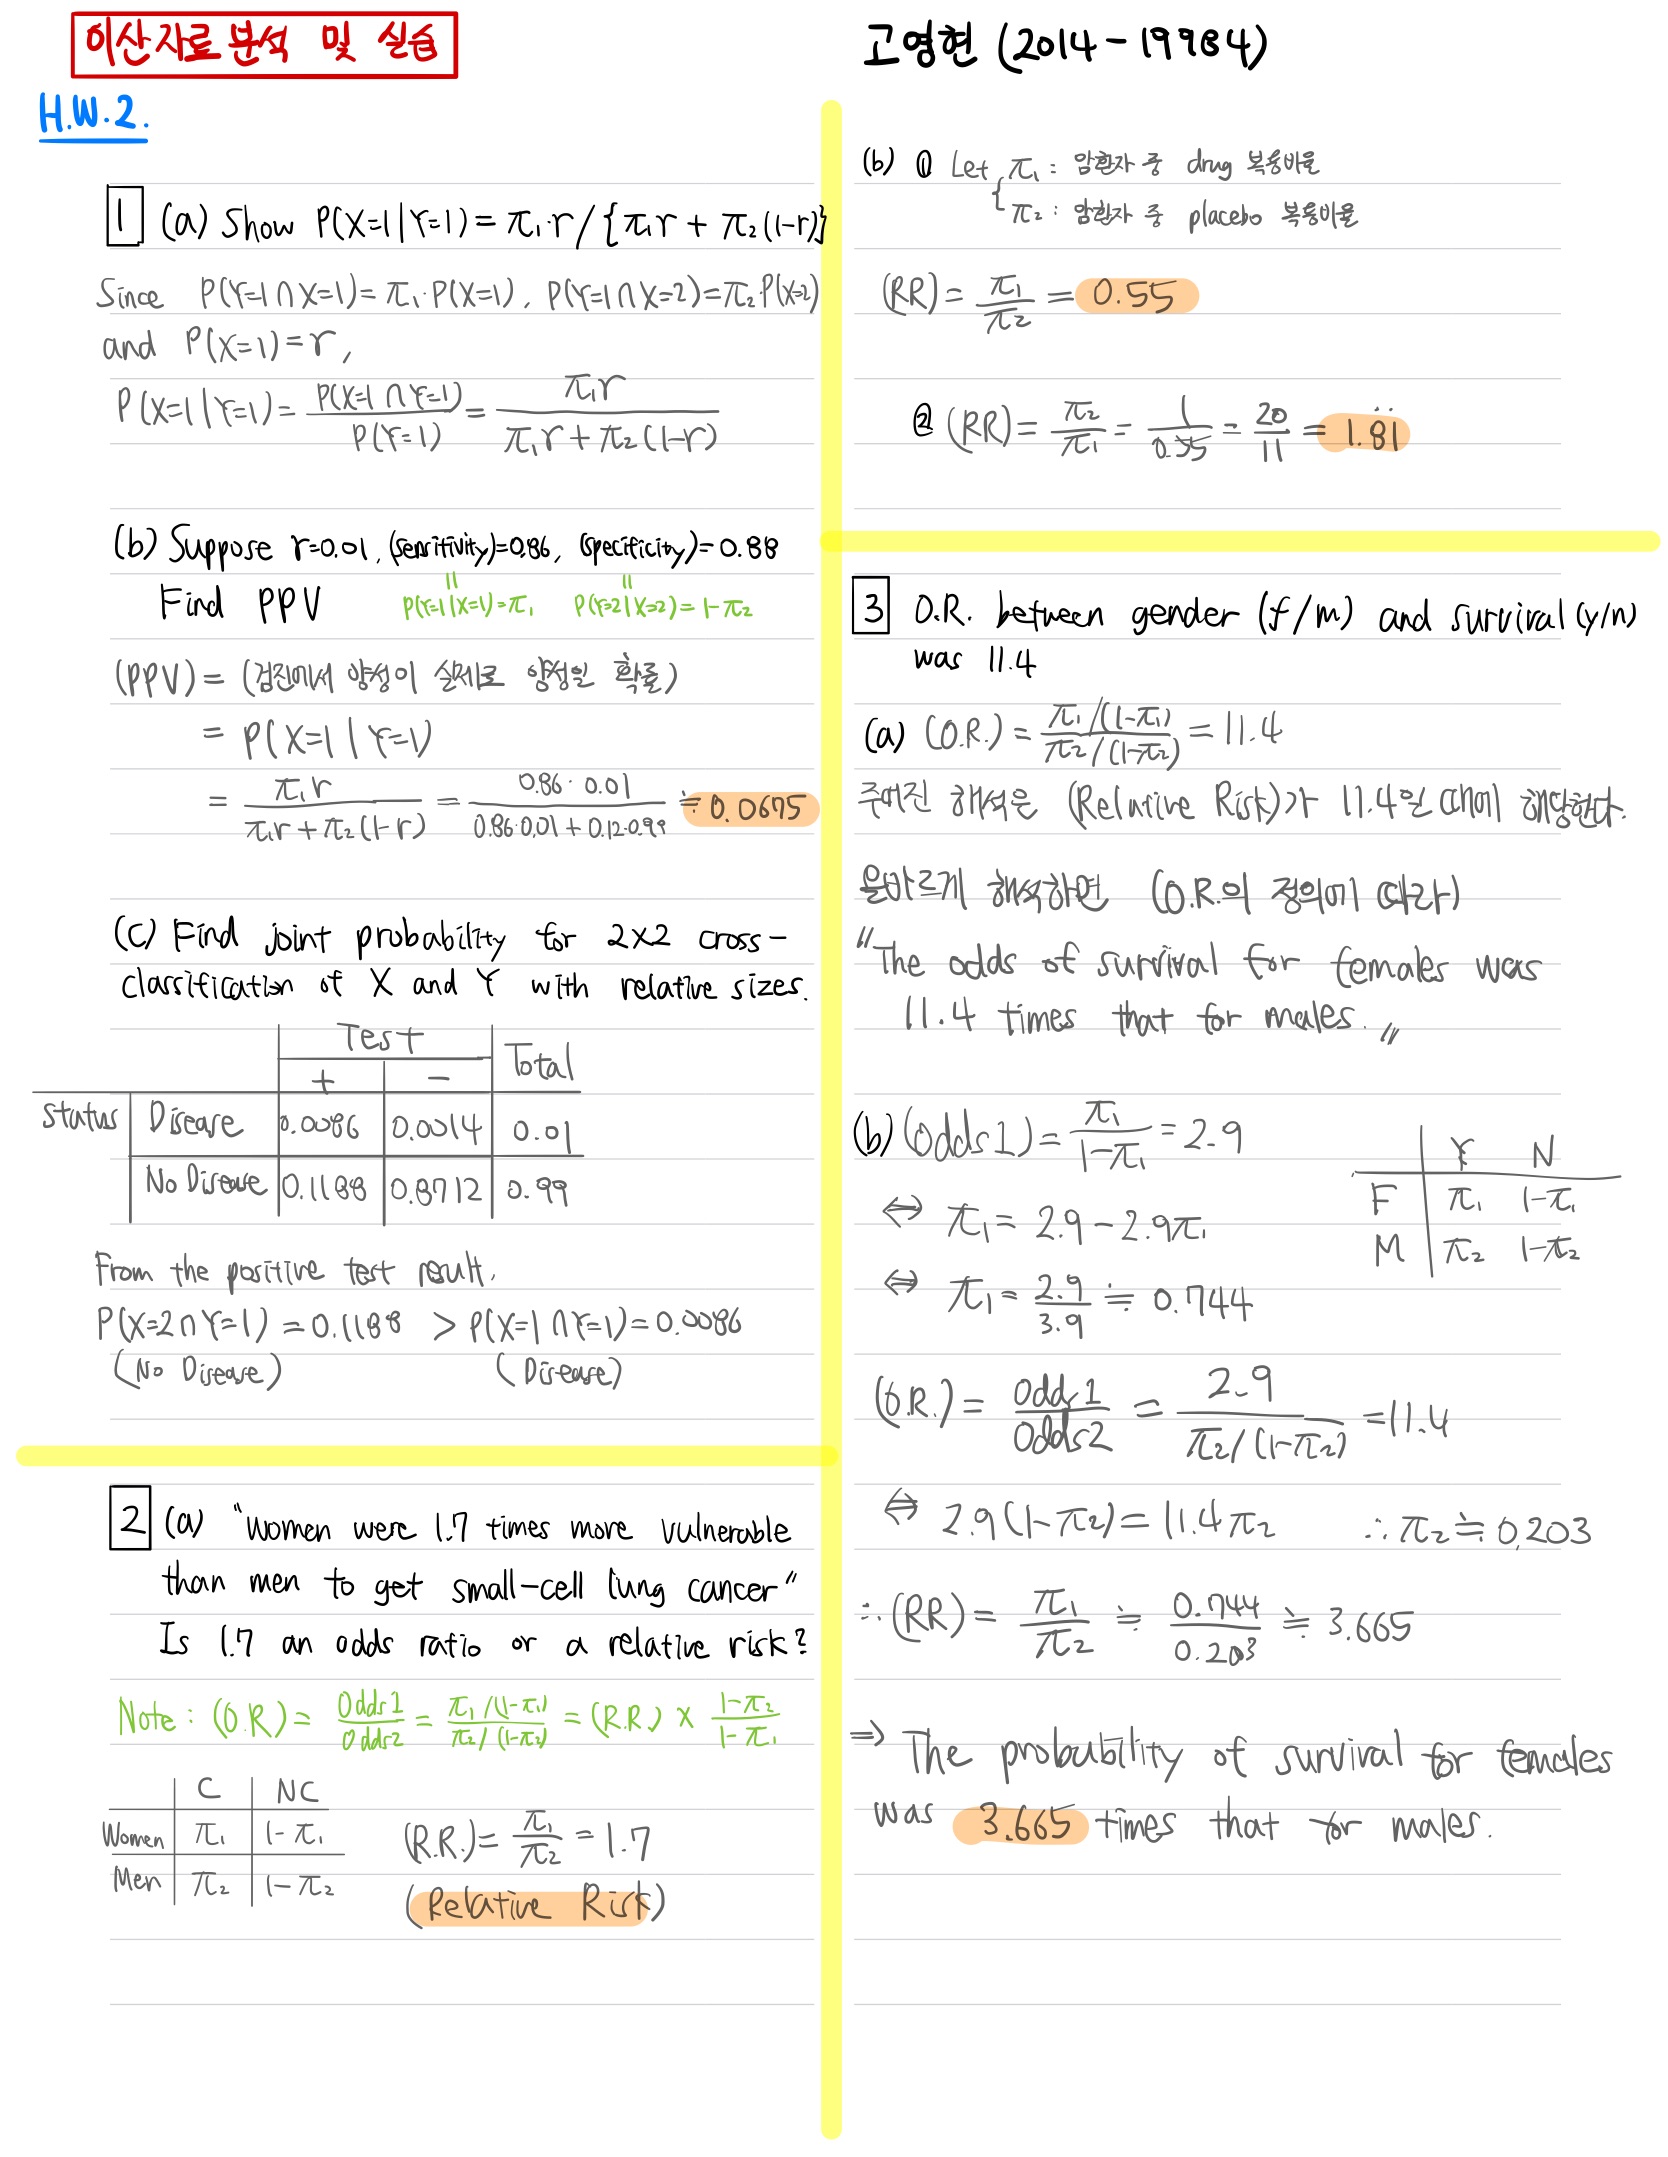 이산자료분석 및 실습
고영현 (2014-19984)
H.W.2.
1 (a) Show P(X=1|Y=1) = π₁·r/{π₁r + π₂(1-r)}
Since P(Y=1∩X=1) = π₁·P(X=1), P(Y=1∩X=2)=π₂·P(X=2)
and P(X=1)=r,
P(X=1|Y=1) = P(X=1∩Y=1)/P(Y=1) = π₁r/π₁r+π₂(1-r)
(b) Suppose r=0.01, (sensitivity)=0.86, (specificity)=0.88
Find PPV
P(Y=1|X=1)=π₁ P(Y=2|X=2)=1-π₂
(PPV) = (검진에서 양성이 실제로 양성일 확률)
= P(X=1|Y=1)
= π₁r/π₁r+π₂(1-r) = 0.86·0.01/0.86·0.01+0.12·0.99 ≒ 0.0675
(C) Find joint probability for 2×2 cross-
classification of X and Y with relative sizes.
Test
Total
+ -
Status Disease 0.0086 0.0014 0.01
No Disease 0.1188 0.8712 0.99
From the positive test result,
P(X=2∩Y=1) = 0.1188 > P(X=1∩Y=1)=0.0086
(No Disease) (Disease)
2 (a) "Women were 1.7 times more vulnerable
than men to get small-cell lung cancer"
Is 1.7 an odds ratio or a relative risk?
Note: (O.R) = Odds1/Odds2 = π₁/(1-π₁)/π₂/(1-π₂) = (R.R.) × 1-π₂/1-π₁
C NC
Women π₁ 1-π₁
Men π₂ 1-π₂
(R.R.) = π₁/π₂ = 1.7
(Relative Risk)
(b) ① Let π₁: 암환자 중 drug 복용비율
π₂: 암환자 중 placebo 복용비율
(RR) = π₁/π₂ = 0.55
② (RR) = π₂/π₁ = 1/0.55 = 20/11 = 1.8̇1̇
3 O.R. between gender (f/m) and survival (y/n)
was 11.4
(a) (O.R.) = π₁/(1-π₁)/π₂/(1-π₂) = 11.4
주어진 해석은 (Relative Risk)가 11.4일 때에 해당한다.
올바르게 해석하면 (O.R.의 정의에 따라)
"The odds of survival for females was
11.4 times that for males."
(b) (Odds1) = π₁/1-π₁ = 2.9
⇔ π₁ = 2.9-2.9π₁
⇔ π₁ = 2.9/3.9 ≒ 0.744
Y N
F π₁ 1-π₁
M π₂ 1-π₂
(O.R.) = Odds1/Odds2 = 2.9/π₂/(1-π₂) = 11.4
⇔ 2.9(1-π₂) = 11.4π₂ ∴ π₂ ≒ 0.203
∴ (RR) = π₁/π₂ ≒ 0.744/0.203 ≒ 3.665
⇒ The probability of survival for females
was 3.665 times that for males.